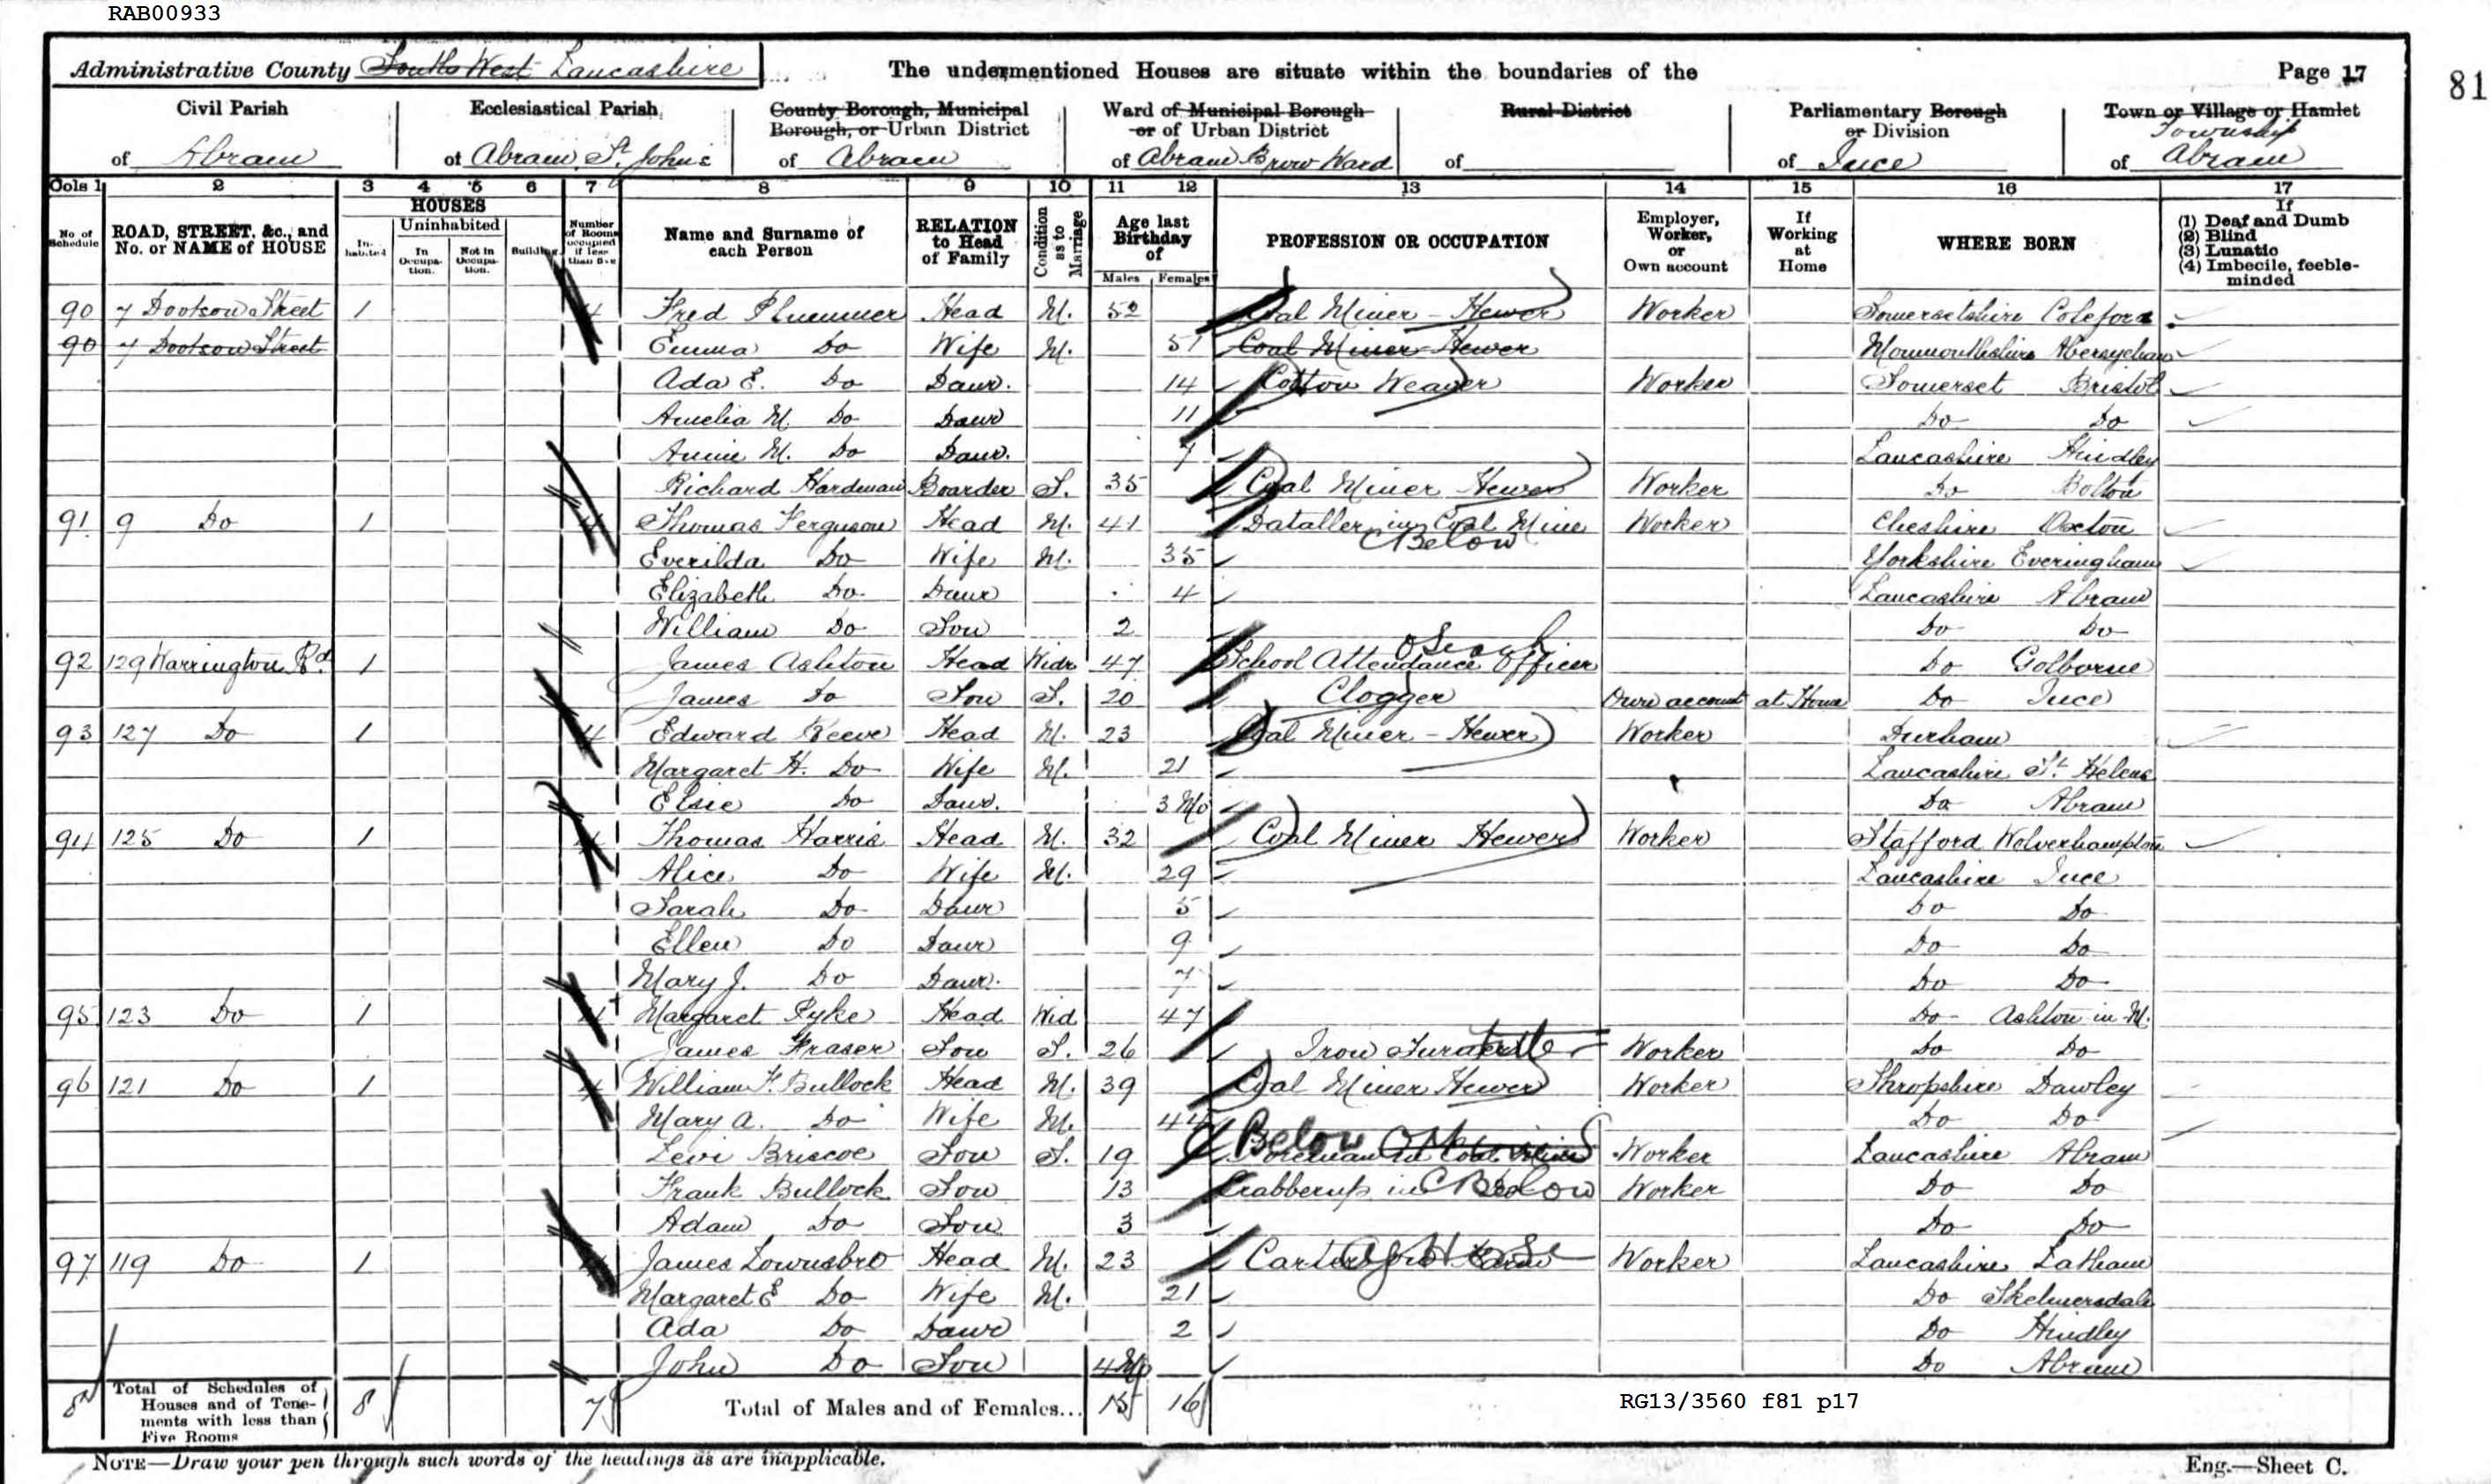 RAB00933
Administrative County South West Lancashire The undermentioned Houses are situate within the boundaries of the Page 17
81
Civil Parish Ecclesiastical Parish County Borough, Municipal Borough, or Urban District Ward of Municipal Borough or of Urban District Rural District Parliamentary Borough or Division Town or Village or Hamlet Township
of Abram of Abram St. Johns of Abram of Abram Brow Ward of of Ince of Abram
Cols 1 2 3 4 5 6 7 8 9 10 11 12 13 14 15 16 17
No of Schedule ROAD, STREET, &c., and No. or NAME of HOUSE HOUSES Inhabited Uninhabited In Occupation. Not in Occupation. Building Number of Rooms occupied if less than five Name and Surname of each Person RELATION to Head of Family Condition as to Marriage Age last Birthday of Males Females PROFESSION OR OCCUPATION Employer, Worker, or Own account If Working at Home WHERE BORN If (1) Deaf and Dumb (2) Blind (3) Lunatic (4) Imbecile, feeble-minded
90 7 Dootson Street 1 4 Fred Plummer Head M. 52 Coal Miner - Hewer Worker Somersetshire Coleford
90 7 Dootson Street Emma Do Wife M. 51 Coal Miner Hewer Monmouthshire Abersychan
Ada E. Do Daur. 14 Cotton Weaver Worker Somerset Bristol
Amelia M. Do Daur 11 Do Do
Annie M. Do Daur. 7 Lancashire Hindley
Richard Hardman Boarder S. 35 Coal Miner Hewer Worker Do Bolton
91 9 Do 1 4 Thomas Ferguson Head M. 41 Dataller in Coal Mine Below Worker Cheshire Oxton
Everilda Do Wife M. 35 Yorkshire Everingham
Elizabeth Do Daur 4 Lancashire Abram
William Do Son 2 Do Do
92 129 Warrington Rd. 1 James Ashton Head Widr 47 School Attendance Officer Do Golborne
James Do Son S. 20 Clogger Own account at Home Do Ince
93 127 Do 1 4 Edward Reeve Head M. 23 Coal Miner - Hewer Worker Durham
Margaret H. Do Wife M. 21 Lancashire St. Helens
Elsie Do Daur. 3 Mo Do Abram
94 125 Do 1 4 Thomas Harris Head M. 32 Coal Miner Hewer Worker Stafford Wolverhampton
Alice Do Wife M. 29 Lancashire Ince
Sarah Do Daur 5 Do Do
Ellen Do Daur 9 Do Do
Mary J. Do Daur. 7 Do Do
95 123 Do 1 4 Margaret Pyke Head Wid 47 Do Ashton in M.
James Fraser Son S. 26 Iron Worker Do Do
96 121 Do 1 4 William F. Bullock Head M. 39 Coal Miner Hewer Worker Shropshire Dawley
Mary A. Do Wife M. 44 Do Do
Levi Briscoe Son S. 19 Below Worker Lancashire Abram
Frank Bullock Son 13 in Below Worker Do Do
Adam Do Son 3 Do Do
97 119 Do 1 4 James Lownsbro Head M. 23 Carter Worker Lancashire Latham
Margaret E Do Wife M. 21 Do Skelmersdale
Ada Do Daur 2 Do Hindley
John Do Son 4 Mo Do Abram
8 Total of Schedules of Houses and of Tenements with less than Five Rooms 8 7 Total of Males and of Females... 15 16
RG13/3560 f81 p17
NOTE—Draw your pen through such words of the headings as are inapplicable. Eng.—Sheet C.